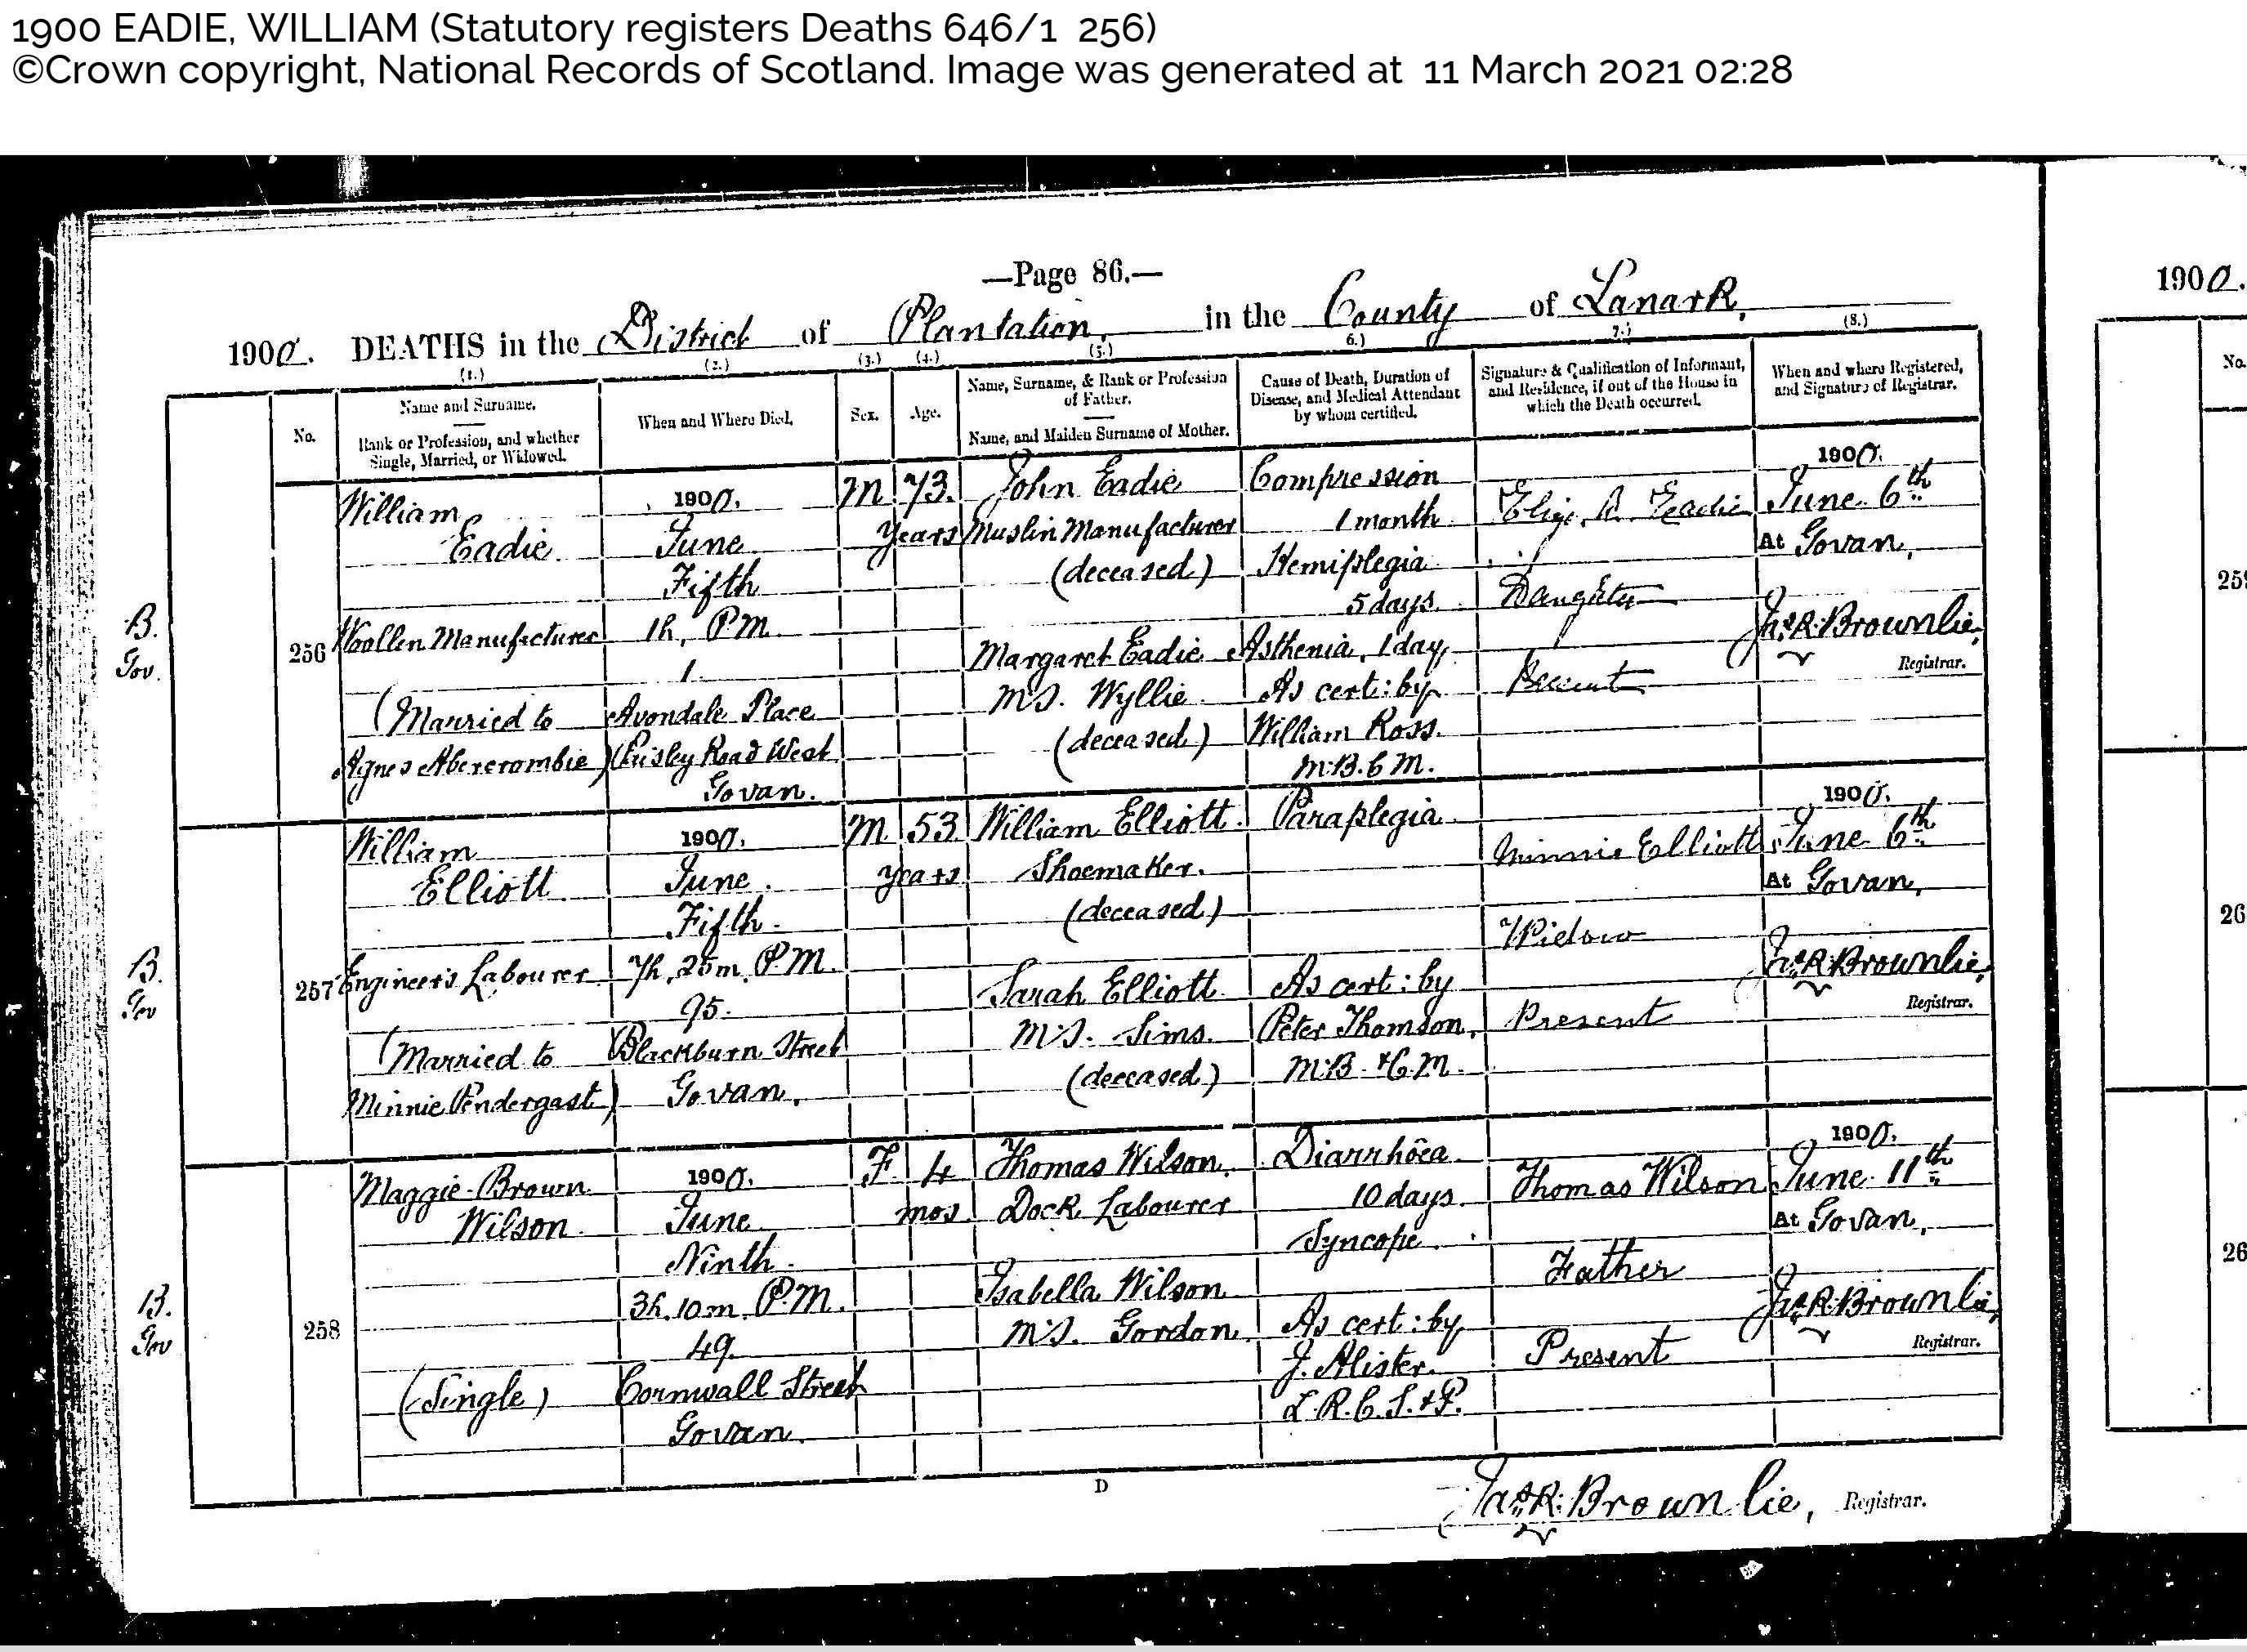 1900 EADIE, WILLIAM (Statutory registers Deaths 646/1 256)
©Crown copyright, National Records of Scotland. Image was generated at 11 March 2021 02:28
—Page 86.—
1900. DEATHS in the District of Plantation, in the County of Lanark,
1900.
(1.) (2.) (3.) (4.) (5.) 6.) 7.) (8.)
No.
Name and Surname.
Rank or Profession, and whether
Single, Married, or Widowed.
When and Where Died.
Sex.
Age.
Name, Surname, & Rank or Profession
of Father.
Name, and Maiden Surname of Mother.
Cause of Death, Duration of
Disease, and Medical Attendant
by whom certified.
Signature & Qualification of Informant,
and Residence, if out of the House in
which the Death occurred.
When and where Registered,
and Signature of Registrar.
No.
B.
Gov.
256
William
Eadie
Woollen Manufacturer
(Married to
Agnes Abercrombie)
1900.
June
Fifth
1h. P.M.
1.
Avondale Place
Paisley Road West
Govan.
M
73.
years
John Eadie
Muslin Manufacturer
(deceased)
Margaret Eadie
M.S. Wyllie
(deceased)
Compression
1 month
Hemiplegia
5 days
Asthenia, 1 day
As cert: by
William Ross.
M.B.C.M.
Eliz. A. Eadie
Daughter
Present
1900.
June 6th
At Govan,
Jas. R. Brownlie,
Registrar.
259
B.
Gov
257
William
Elliott
Engineer's Labourer
(Married to
Minnie Pendergast)
1900.
June
Fifth
7h. 25m. P.M.
95.
Blackburn Street
Govan.
M.
53
years
William Elliott.
Shoemaker.
(deceased)
Sarah Elliott
M.S. Sims.
(deceased)
Paraplegia
As cert: by
Peter Thomson,
M.B. & C.M.
Minnie Elliott
Widow
Present
1900.
June 6th
At Govan,
Jas. R. Brownlie,
Registrar.
26
B.
Gov
258
Maggie Brown
Wilson
(Single)
1900.
June
Ninth
3h. 10m. P.M.
49.
Cornwall Street
Govan.
F.
4
mos.
Thomas Wilson,
Dock Labourer
Isabella Wilson
M.S. Gordon
Diarrhôea
10 days
Syncope
As cert: by
J. Alister.
L.R.C.S. & P.
Thomas Wilson
Father
Present
1900.
June 11th
At Govan,
Jas. R. Brownlie,
Registrar.
26
D
Jas. R. Brownlie, Registrar.